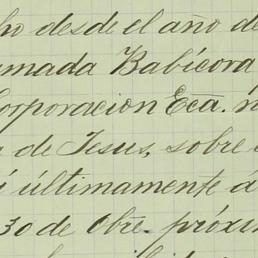 ho desde el año de
amada Babícora
Corporacion Eca. n
a de Jesus, sobre
i últimamente á
30 de Obre. próxim